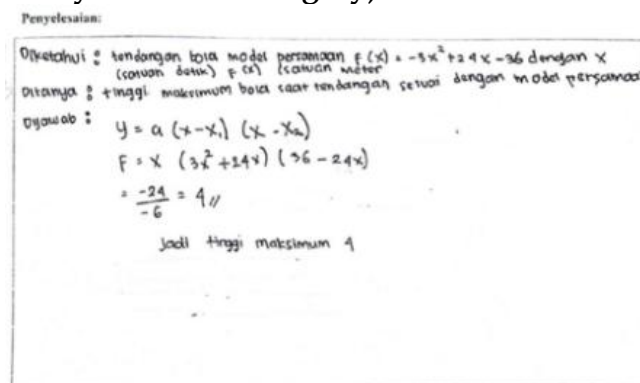 Penyelesaian:
Diketahui : tendangan bola model persamaan F(x) = -3x² + 24x - 36 dengan x
(satuan detik) F(x) (satuan meter
Ditanya : tinggi maksimum bola saat tendangan sesuai dengan model persamaan
Dijawab :
y = a (x-x₁) (x-x₂)
F = x (3x² + 24x) (36 - 24x)
= -24/-6 = 4 //
Jadi tinggi maksimum 4